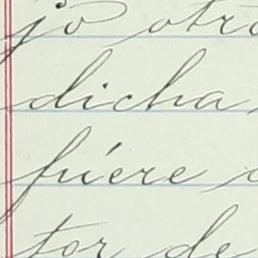 jo otro
dicha
fuére
tor de